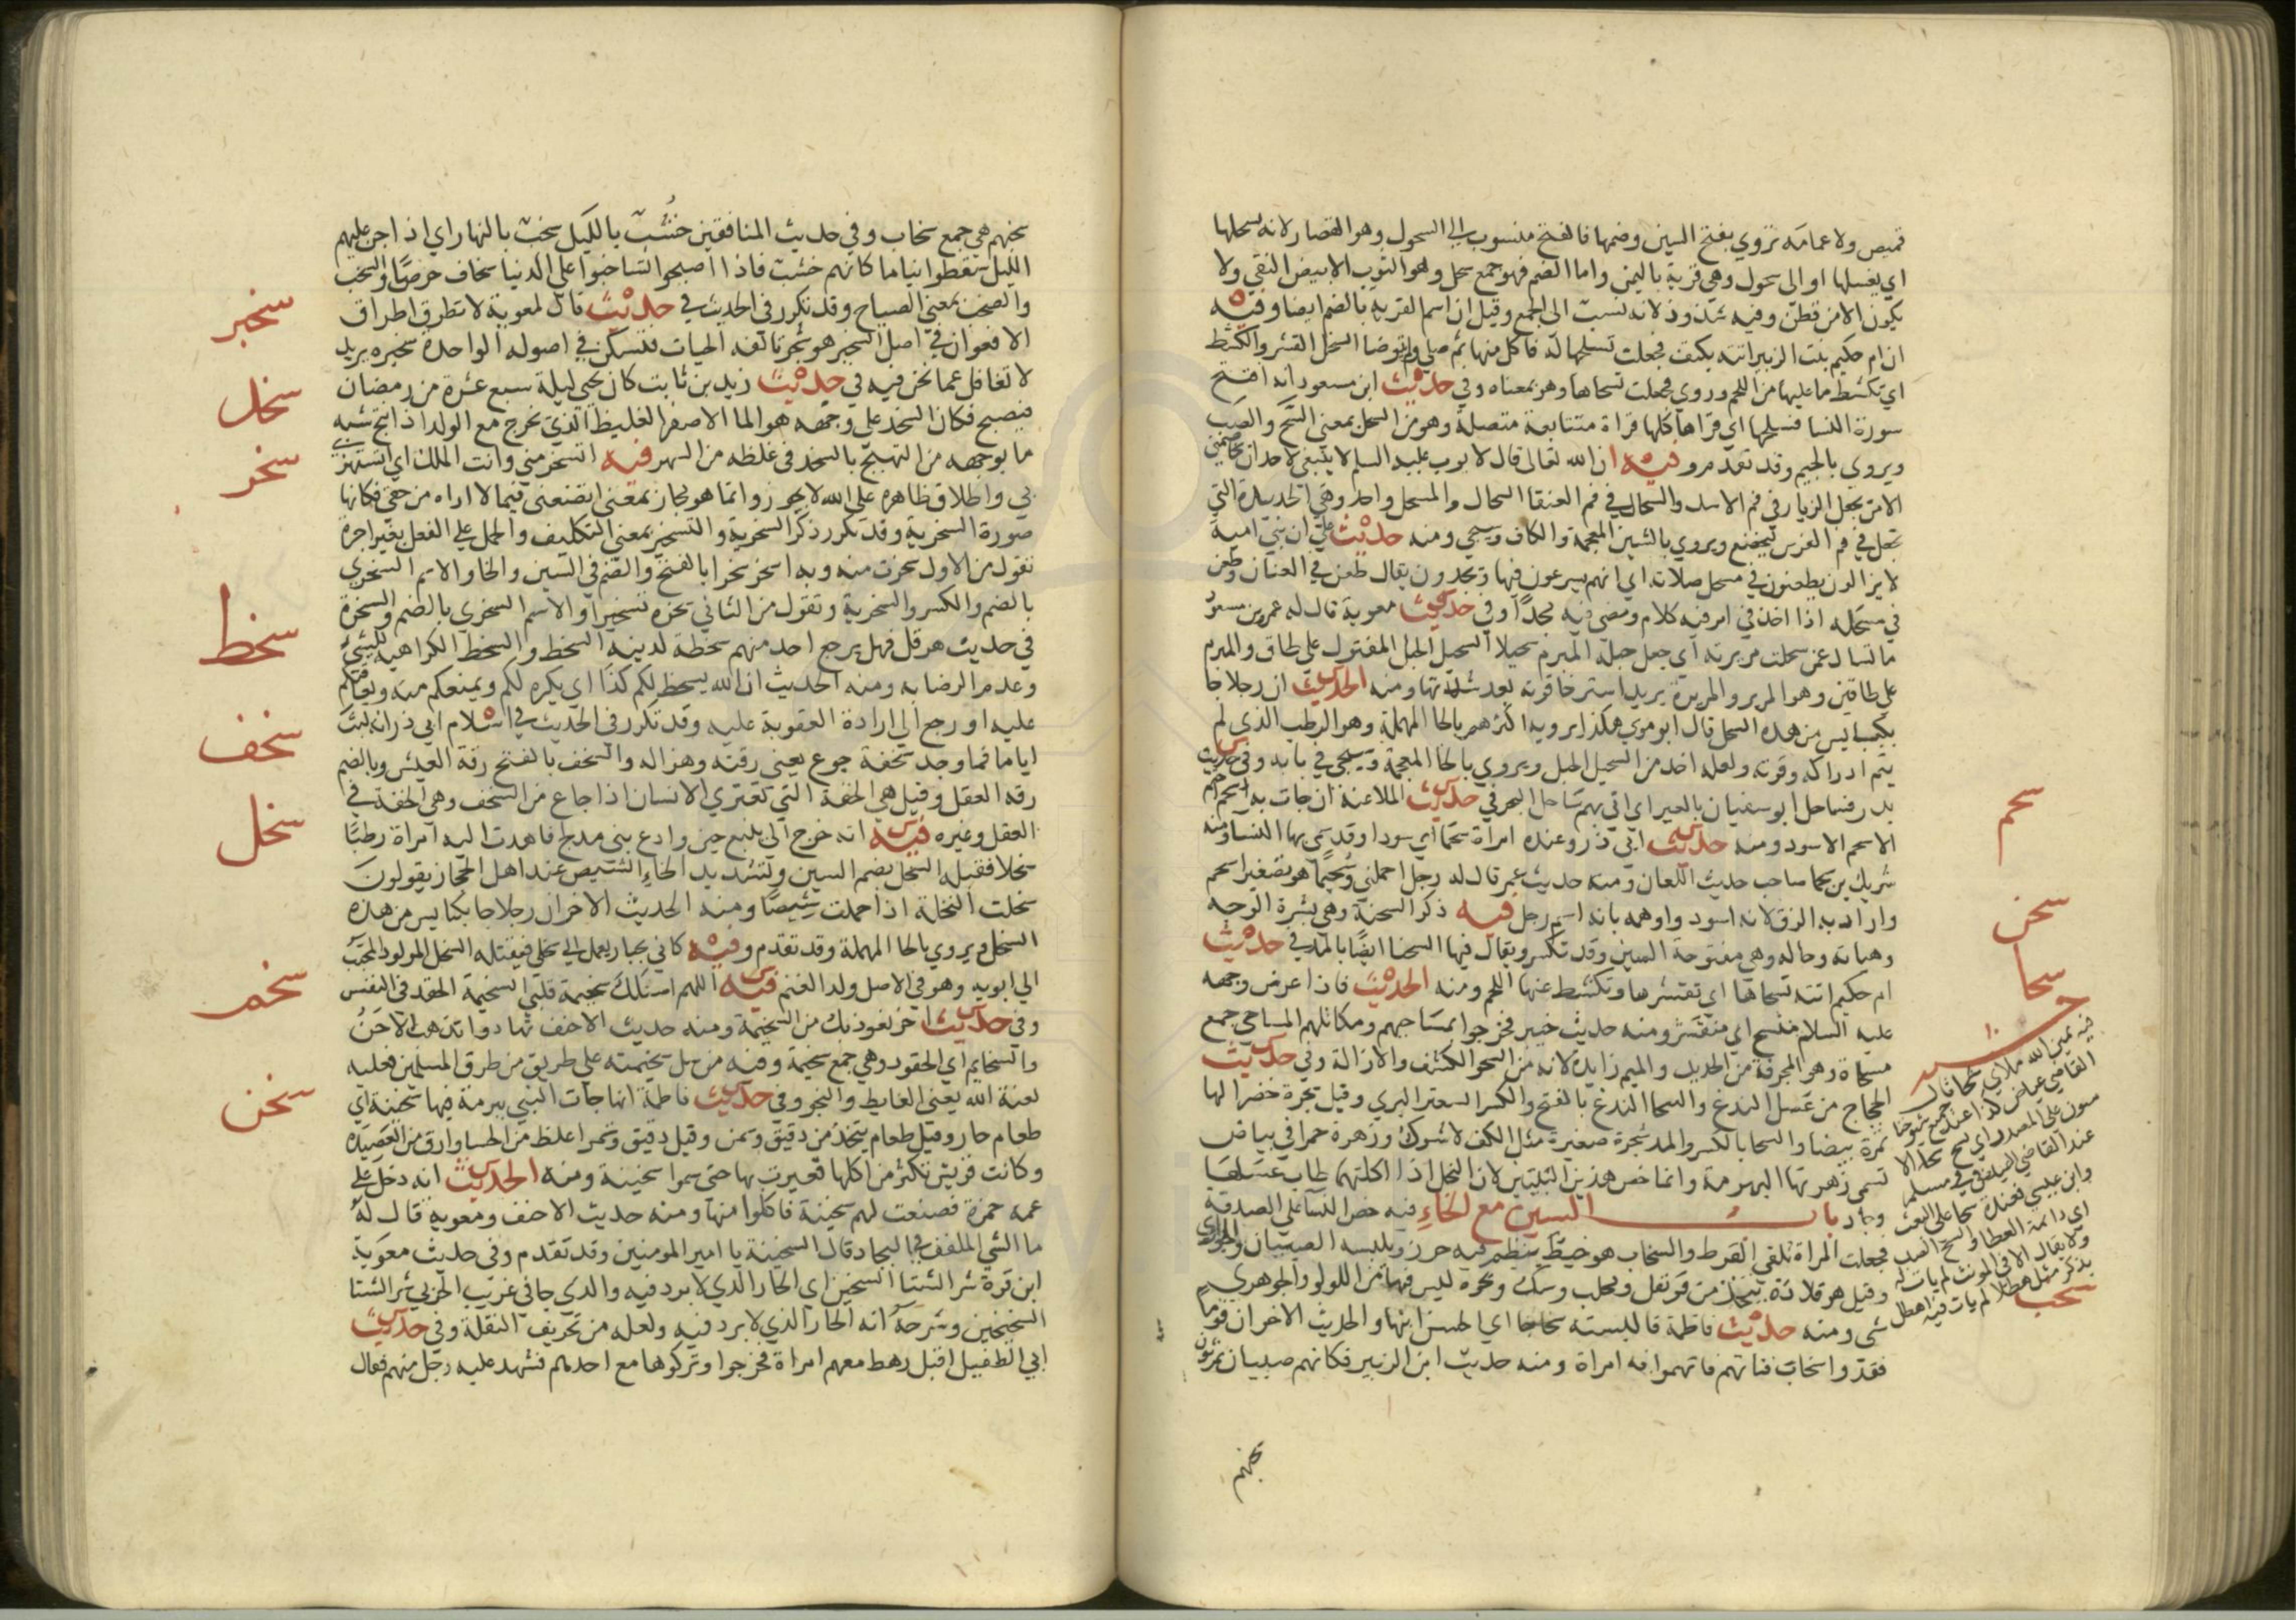 قميص ولا عمامه تروي بفتح السين وضمها فالفتح منسوب الى السحول وهو القصار لانه يسحلها
اي يغسلها او الى سحول وهي قرية باليمن واما الضم فهو جمع سحل وهو الثوب الابيض النقي ولا
يكون الا من قطن وفيه شذوذ لانه نسب الى الجمع وقيل ان اسم القرية بالضم ايضا وفيه
ان ام حكيم بنت الزبير اتته بكتف فجعلت تسحلها له فاكل منها ثم صلى ولم يتوضا السحل القشر والكشط
اي تكشط ما عليها من اللحم وروي فجعلت تسحاها وهو بمعناه وفي حديث ابن مسعود انه افتتح
سورة النسا فسحلها اي قراها كلها قراة متتابعة متصلة وهو من السحل بمعنى السح والصب
ويروي بالجيم وقد تقدم وفيه ان الله تعالى قال لايوب عليه السلم لا ينبغي لاحد ان يخاصمني
الا من يجعل الزيار في فم الاسد والسحال في فم العنقا السحال والمسحل واحد وهي الحديدة التي
تجعل في فم الفرس ليخضع ويروي بالشين المعجمة والكاف وسيجي ومنه حديث علي ان بني امية
لا يزالون يطعنون في مسحل ضلالة اي انهم يسرعون فيها ويجدون يقال طعن في العنان وطعن
في مسحله اذا اخذ في امر فيه كلام ومضى فيه مجدا وفي حديث معوية قال له عمرو بن مسعود
ما تسال عمن سحلت مريرته اي جعل حبله المبرم سحيلا السحيل الحبل المفتول على طاق والمبرم
على طاقين وهو المرير والمريرة يريد استرخا قوته بعد شدتها ومنه الحديث ان رجلا جا
بكبايس من هذه السحل قال ابو موسى هكذا يرويه اكثرهم بالحا المهملة وهو الرطب الذي لم
يتم ادراكه وقوته ولعله اخذ من السحيل الحبل ويروي بالخا المعجمة وسيجي في بابه وفي حديث
بدر فساحل ابو سفيان بالعير اي اتى بهم ساحل البحر في حديث الملاعنة ان جات به اسحم
الاسحم الاسود ومنه حديث ابي ذر وعنده امراة سحما اي سودا وقد سمي بها النسا ومنه
شريك بن سحما صاحب حديث اللعان ومنه حديث عمر قال له رجل احملني وسحيما هو تصغير اسحم
واراد به الزق لانه اسود واوهمه بانه اسم رجل فيه ذكر السحنة وهي بشرة الوجه
وهياته وحاله وهي مفتوحة السين وقد تكسر ويقال فيها السحنا ايضا بالمد في حديث
ام حكيم اتته تسحاها اي تقشرها وتكشط عنها اللحم ومنه الحديث فاذا عرض وجهه
عليه السلام منسح اي منقشر ومنه حديث خيبر فخرجوا بمساحيهم ومكاتلهم المساحي جمع
مسحاة وهو المجرفة من الحديد والميم زايدة لانه من السحو الكشف والازالة وفي حديث
الحجاج من عسل الندغ والسحا الندغ بالفتح والكسر السعتر البري وقيل شجرة خضرا لها
ثمرة بيضا والسحا بالكسر والمد شجرة صغيرة مثل الكف لا شوك وزهرة حمرا في بياض
تسمى زهرتها البهرمة وانما خص هذين النبتين لان النحل اذا اكلتهما طاب عسلها
وجاد باب السين مع الخاء فيه حض النسا على الصدقة
فجعلت المراة تلقي القرط والسخاب هو خيط ينظم فيه خرز ويلبسه الصبيان والجواري
وقيل هو قلادة يتخذ من قرنفل ومحلب وسك ونحوه ليس فيها من اللولو والجوهر
شي ومنه حديث فاطمة فالبسته سخابا اي الحسن ابنها والحديث الاخر ان قوما
فقدوا سخاب فتاتهم فاتهموا به امراة ومنه حديث ابن الزبير فكانهم صبيان يمرثون
سخبهم
سحم
سحن
سحا
فيه يمين الله ملاي سحا قال
القاضي عياض كذا عند جميع شيوخنا
منون على المصدر اي تسح سحا الا
عند القاضي
وابن عيسى فعنده سحا على النعت
اي دائمة العطا والسح الصب
ولا يقال الا في المونث لم يات له
بذكر مثل هطلا لم يات فيه اهطل
سخب
سخبهم هي جمع سخاب وفي حديث المنافقين خشب بالليل سخب بالنهار اي اذا جن عليهم
الليل سقطوا نياما كانهم خشب فاذا اصبحوا تساخبوا على الدنيا سخاف حرصا والسخب
والصخب بمعنى الصياح وقد تكرر في الحديث في حديث قال لمعوية لا تطرق اطراق
الافعوان في اصل السخبر هو شجر تالفه الحيات فتسكن في اصوله الواحدة سخبرة يريد
لا تغافل عما نحن فيه في حديث زيد بن ثابت كان يحيي ليلة سبع عشرة من رمضان
فيصبح فكان السخد على وجهه هو الما الاصفر الغليظ الذي يخرج مع الولد اذا نتج شبه
ما بوجهه من التهيج بالسخد في غلظه من السهر فيه اتسخر مني وانت الملك اي اتستهزئ
بي واطلاق ظاهره على الله لا يجوز وانما هو مجاز بمعنى اتضعني فيما لا اراه من حقي فكانها
صورة السخرية وقد تكرر ذكر السخرية والتسخير بمعنى التكليف والحمل على الفعل بغير اجرة
تقول من الاول سخرت منه وبه اسخر سخرا بالفتح والضم في السين والخا والاسم السخري
بالضم والكسر والسخرية وتقول من الثاني سخره تسخيرا والاسم السخري بالضم والسخرة
في حديث هرقل فهل يرجع احد منهم سخطة لدينه السخط والسخط الكراهية للشي
وعدم الرضا به ومنه الحديث ان الله يسخط لكم كذا اي يكره لكم ويمنعكم منه ويعاقبكم
عليه او رجع الى ارادة العقوبة عليه وقد تكرر في الحديث في اسلام ابي ذر انه لبث
اياما فما وجد سخفة جوع يعني رقته وهزاله والسخف بالفتح رقة العيش وبالضم
رقه العقل وقيل هي الخفة التي تعتري الانسان اذا جاع من السخف وهي الخفة في
العقل وغيره فيه انه خرج الى ينبع حين وادع بني مدلج فاهدت اليه امراة رطبا
سخلا فقبله السخل بضم السين وتشديد الخاء الشيص عند اهل الحجاز يقولون
سخلت النخلة اذا حملت شيصا ومنه الحديث الاخر ان رجلا جا بكبايس من هذه
السخل ويروي بالحا المهملة وقد تقدم وفيه كاني بجبار يعمد الى سخلي فيقتله السخل المولود المحبب
الى ابويه وهو في الاصل ولد الغنم فيه اللهم اسلل سخيمة قلبي السخيمة الحقد في النفس
وفي حديث اخر نعوذ بك من السخيمة ومنه حديث الاحنف تهادوا تذهب الاحن
والسخايم اي الحقود وهي جمع سخيمة وفيه من سل سخيمته على طريق من طرق المسلمين فعليه
لعنة الله يعني الغايط والنجو وفي حديث فاطمة انها جات النبي ببرمة فيها سخينة اي
طعام حار وقيل طعام يتخذ من دقيق وسمن وقيل دقيق وتمر اغلظ من الحسا وارق من العصيدة
وكانت قريش تكثر من اكلها فعيرت بها حتى سموا سخينة ومنه الحديث انه دخل على
عمه حمزة فصنعت لهم سخينة فاكلوا منها ومنه حديث الاحنف ومعوية قال له
ما الشي الملفف في البجاد قال السخينة يا امير المومنين وقد تقدم وفي حديث معوية
ابن قرة شر الشتا السخين اي الحار الذي لا برد فيه والذي جا في غريب الحربي شر الشتا
السخيخين وشرحه انه الحار الذي لا برد فيه ولعله من تحريف النقلة وفي حديث
ابي الطفيل اقبل رهط معهم امراة فخرجوا وتركوها مع احدهم فشهد عليه رجل منهم فقال
سخبر
سخد
سخر
سخط
سخف
سخل
سخم
سخن